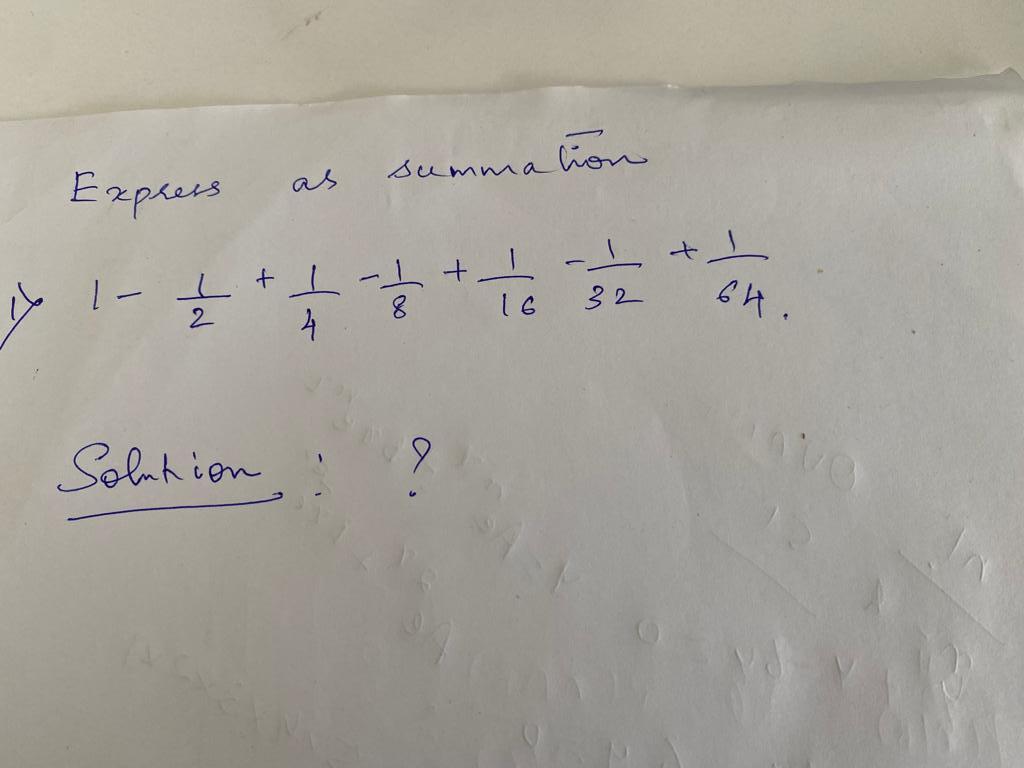 Express as summation
1) 1 - 1/2 + 1/4 - 1/8 + 1/16 - 1/32 + 1/64.
Solution : ?